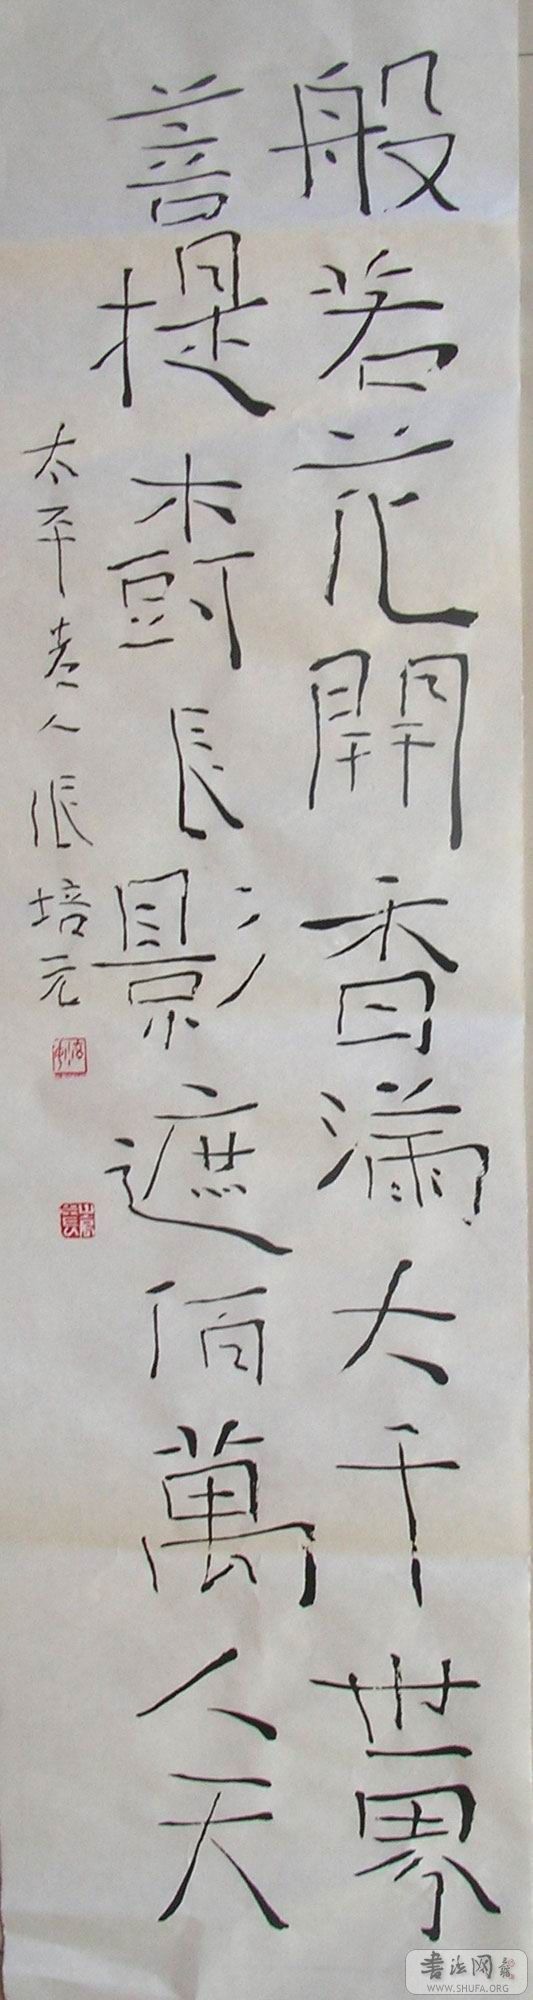 般若花開香滿大千世界
菩提樹長影遮佰萬人天
太平老人張培元
书法网
WWW.SHUFA.ORG